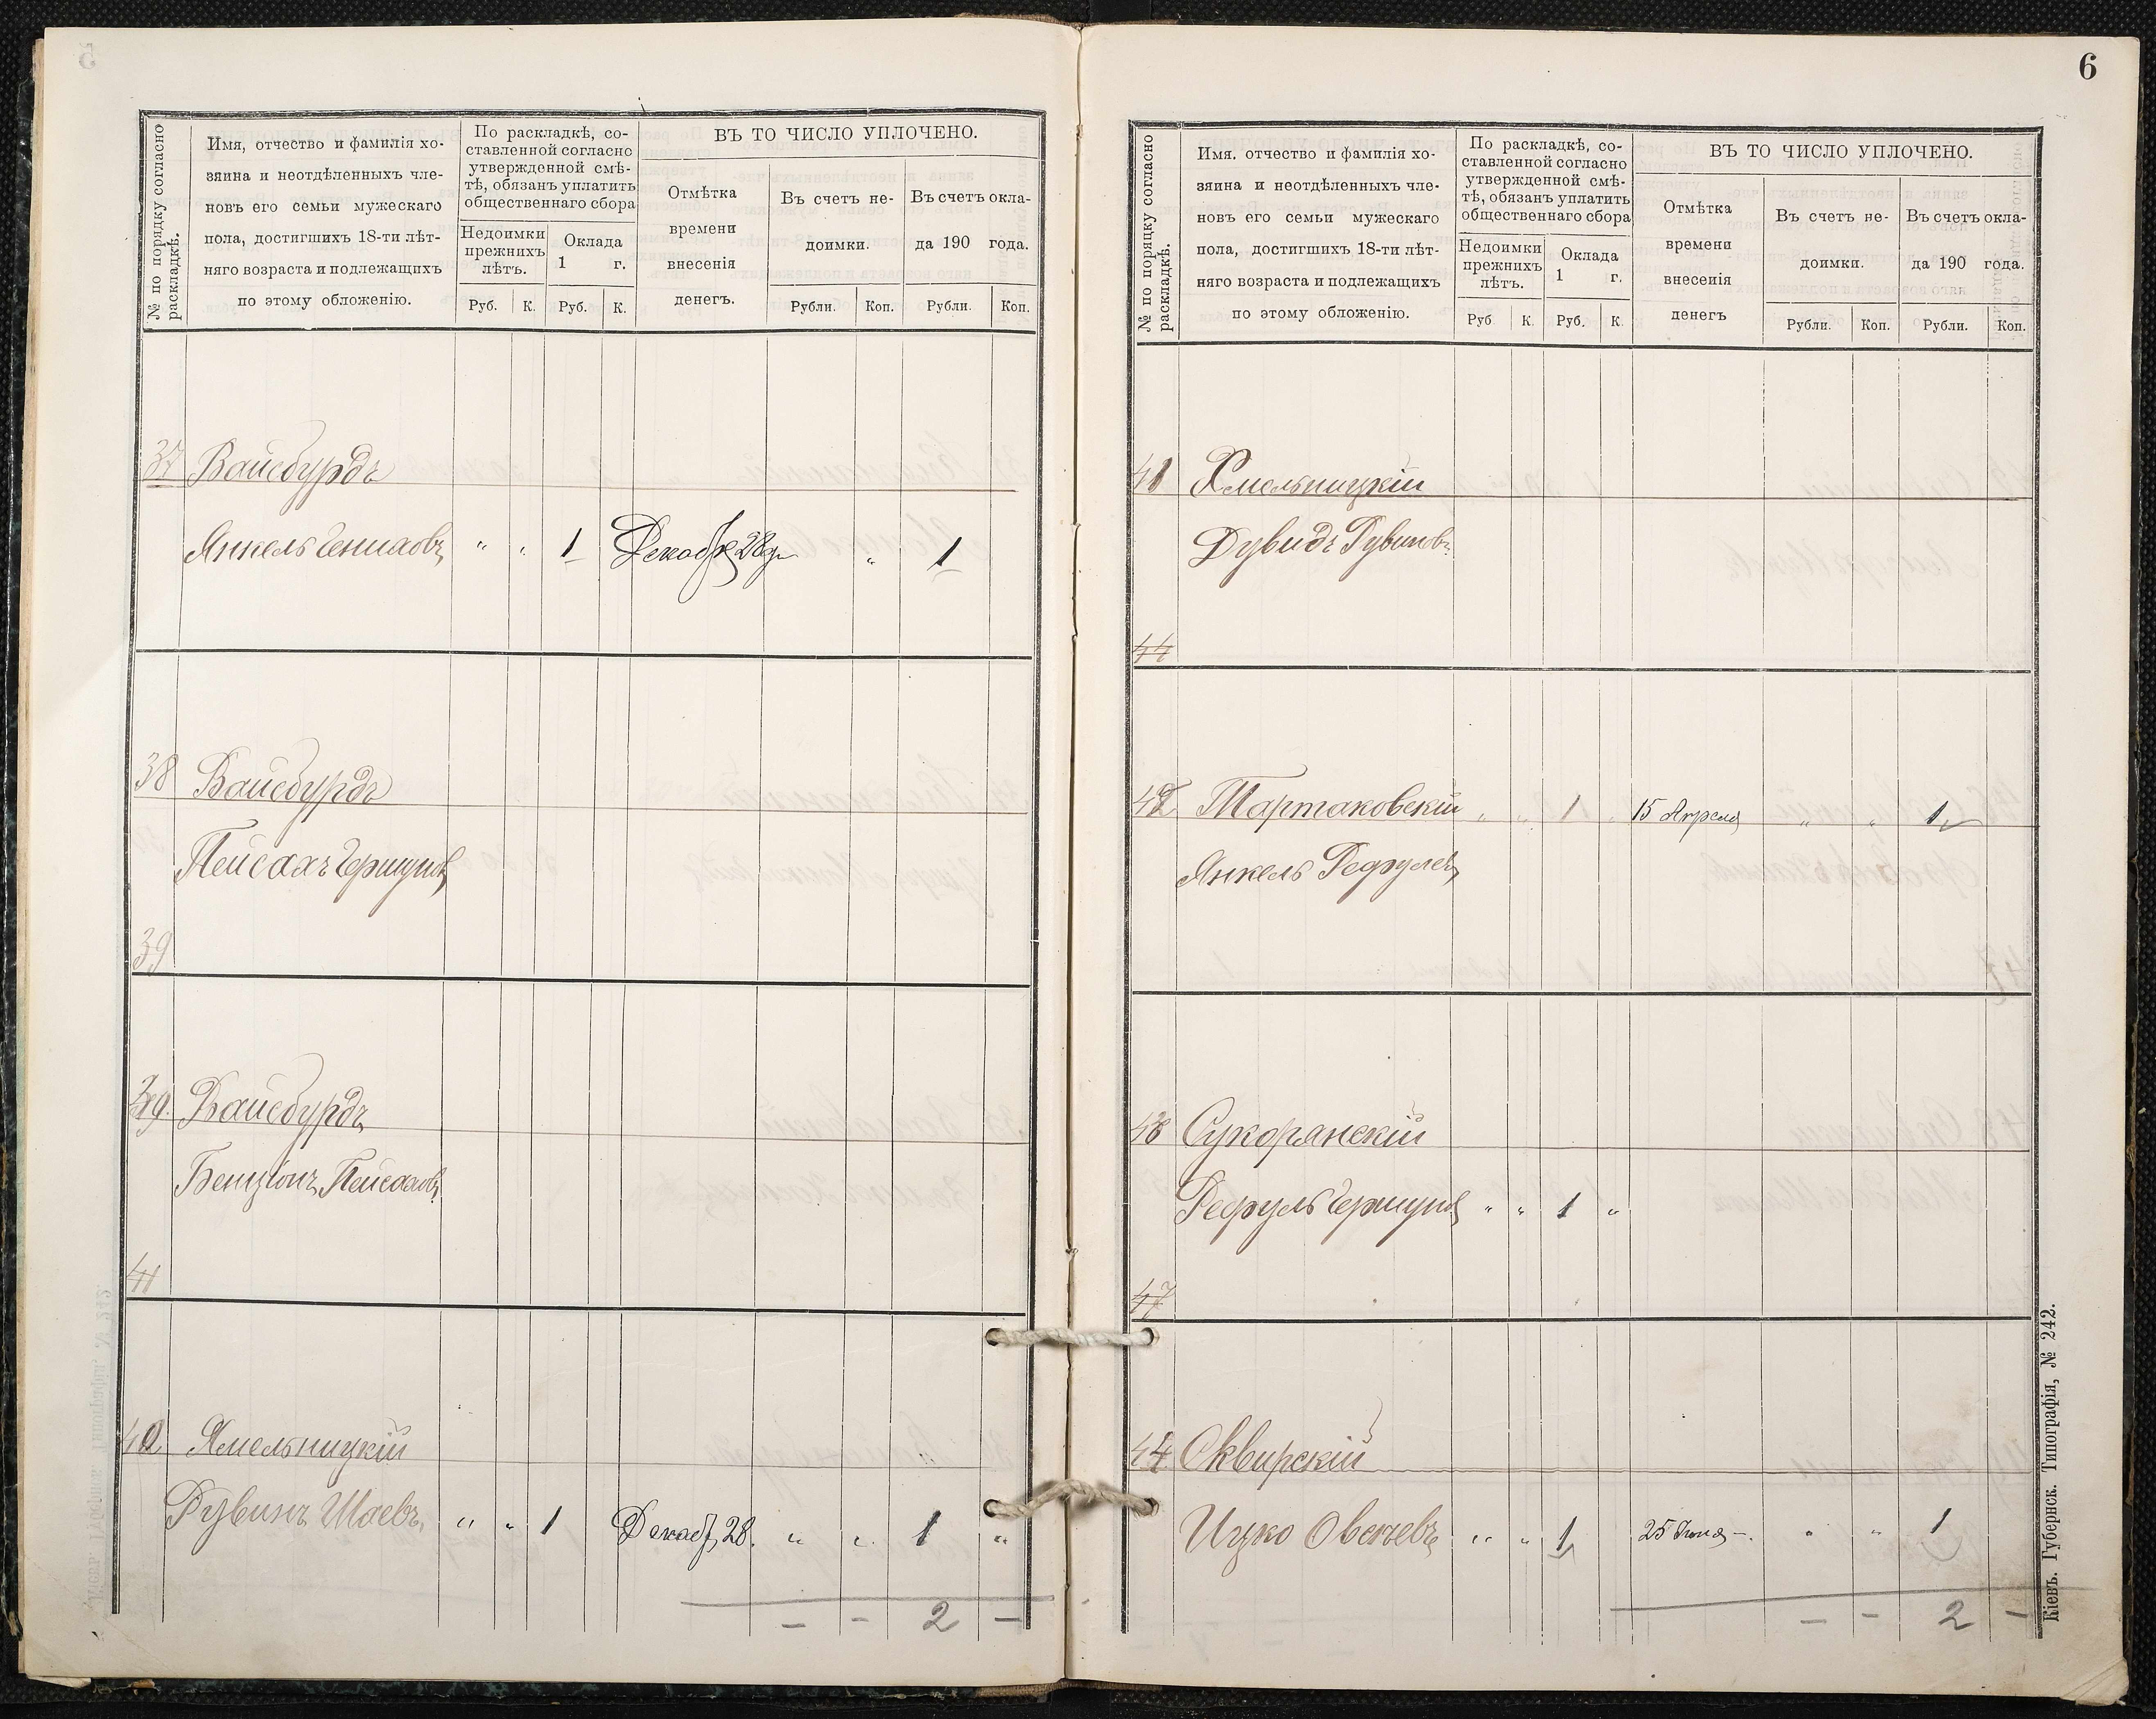 № по порядку согласно
раскладкѣ.
Имя, отчество и фамилія хо-
зяина и неотдѣленныхъ чле-
новъ его семьи мужескаго
пола, достигшихъ 18-ти лѣт-
няго возраста и подлежащихъ
по этому обложенію.
По раскладкѣ, со-
ставленной согласно
утвержденной смѣ-
тѣ, обязанъ уплатить
общественнаго сбора
Недоимки
прежнихъ
лѣтъ.
Оклада
1 г.
Руб. К. Руб. К.
ВЪ ТО ЧИСЛО УПЛОЧЕНО.
Отмѣтка
времени
внесенія
денегъ.
Въ счетъ не-
доимки.
Въ счетъ окла-
да 190 года.
Рубли. Коп. Рубли. Коп.
37 Вайсбурдъ
Янкель " " 1 Декабря 28 " 1
38 Вайсбурдъ
Пейсахъ Гершуновъ
39
39. Вайсбурдъ
Бенціонъ Пейсаховъ
41
40 Хмельницкій
Рувинъ Шаевъ " " 1 Декабр 28. " " 1 "
— — 2 —
6
№ по порядку согласно
раскладкѣ.
Имя. отчество и фамилія хо-
зяина и неотдѣленныхъ чле-
новъ его семьи мужескаго
пола, достигшихъ 18-ти лѣт-
няго возраста и подлежащихъ
по этому обложенію.
По раскладкѣ, со-
ставленной согласно
утвержденной смѣ-
тѣ, обязанъ уплатить
общественнаго сбора
Недоимки
прежнихъ
лѣтъ.
Оклада
1 г.
Руб К. Руб. К.
ВЪ ТО ЧИСЛО УПЛОЧЕНО.
Отмѣтка
времени
внесенія
денегъ
Въ счетъ не-
доимки.
Въ счетъ окла-
да 190 года.
Рубли. Коп. Рубли. Коп.
41 Хмельницкій
Дувидъ Рувиновъ
44
42 Тартаковскій " " 1 " 15 Апреля " " 1
Янкель Рефулевъ
43 Сукорянскій
Рефуль Гершуновъ " " 1 "
47
44 Сквирскій
Ицко Овсеевъ " " 1 25 Іюня —. " " 1
— — 2 —
Кіевъ. Губернск. Типографія, № 242.